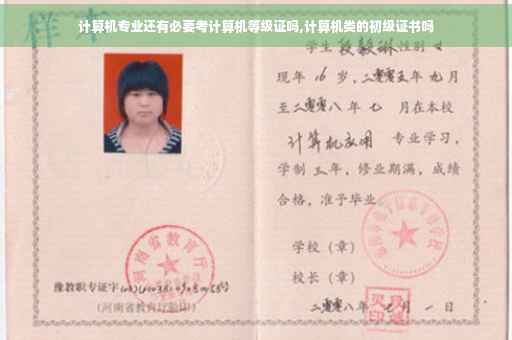 计算机专业还有必要考计算机等级证吗,计算机类的初级证书吗
样本
学生 段毅琳 性别 女
现年 16 岁,二零零五年 九月
至二零零八年 七 月在本校
计算机应用 专业学习,
学制 三年,修业期满,成绩
合格,准予毕业
学校(章)
校长(章)
二零零八年 七 月 一 日
河南省教育厅
豫教职专证字
(河南省教育厅验印)